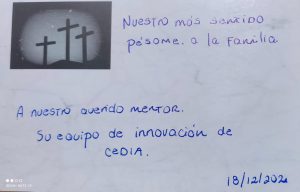 Nuestro más sentido
pésame. a la familia
A nuestro querido mentor.
Su equipo de innovación de
CEDIA.
18/12/202